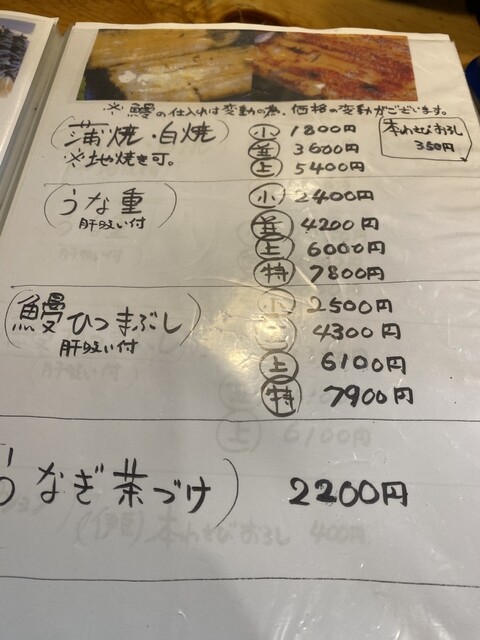 ※鰻の仕入れは変動の為、価格の変動がございます。
蒲焼・白焼
※地焼き可。
小 1800円
並 3600円
上 5400円
本わさびおろし
350円
うな重
肝吸い付
小 2400円
並 4200円
上 6000円
特 7800円
鰻ひつまぶし
肝吸い付
小 2500円
並 4300円
上 6100円
特 7900円
うなぎ茶づけ 2200円